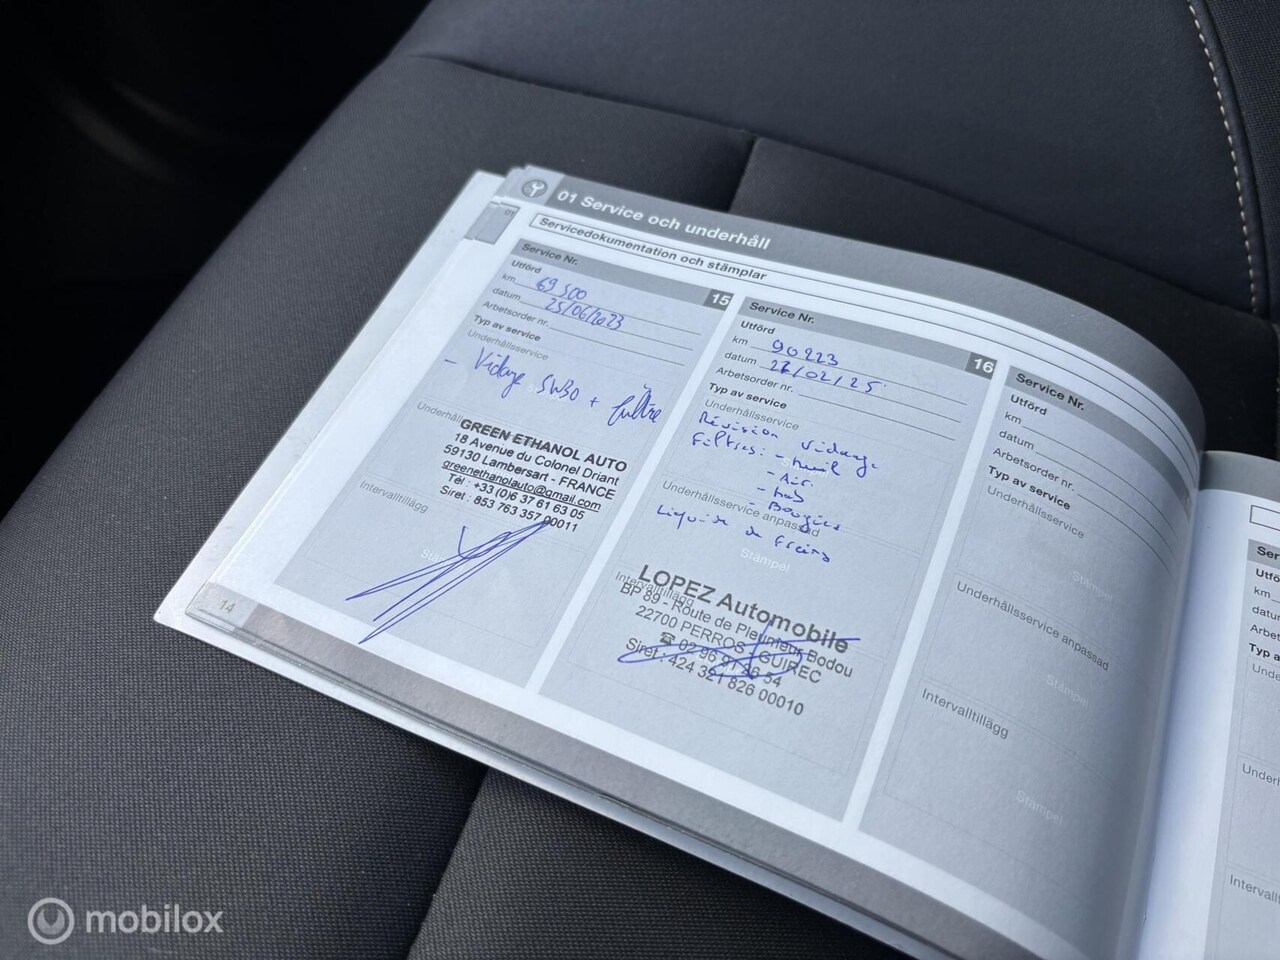 01 Service och underhåll
01
Servicedokumentation och stämplar
Service Nr.
15
Utförd
km 69500
datum 25/06/2023
Arbetsorder nr.
Typ av service
Underhållsservice
- Vidange 5W30 + filtre
GREEN ETHANOL AUTO
18 Avenue du Colonel Driant
59130 Lambersart - FRANCE
greenethanolauto@gmail.com
Tél : +33 (0)6 37 61 63 05
Siret : 853 763 357 00011
Intervalltillägg
14
Service Nr.
16
Utförd
km 90223
datum 27/02/25
Arbetsorder nr.
Typ av service
Underhållsservice
Révision vidange
Filtres: - huil
- Air
- hab
- Bougies
Underhållsservice anpassad
Liquide de freins
Stämpel
Intervalltillägg
LOPEZ Automobile
BP 89 - Route de Pleumeur Bodou
22700 PERROS - GUIREC
☎ 02 96 91 54
Siret : 424 321 826 00010
Service Nr.
Utförd
km
datum
Arbetsorder nr.
Typ av service
Underhållsservice
Stämpel
Underhållsservice anpassad
Stämpel
Intervalltillägg
Stämpel
Ser
Utfö
km
datu
Arbet
Typ a
Unde
Underh
Intervallt
mobilox